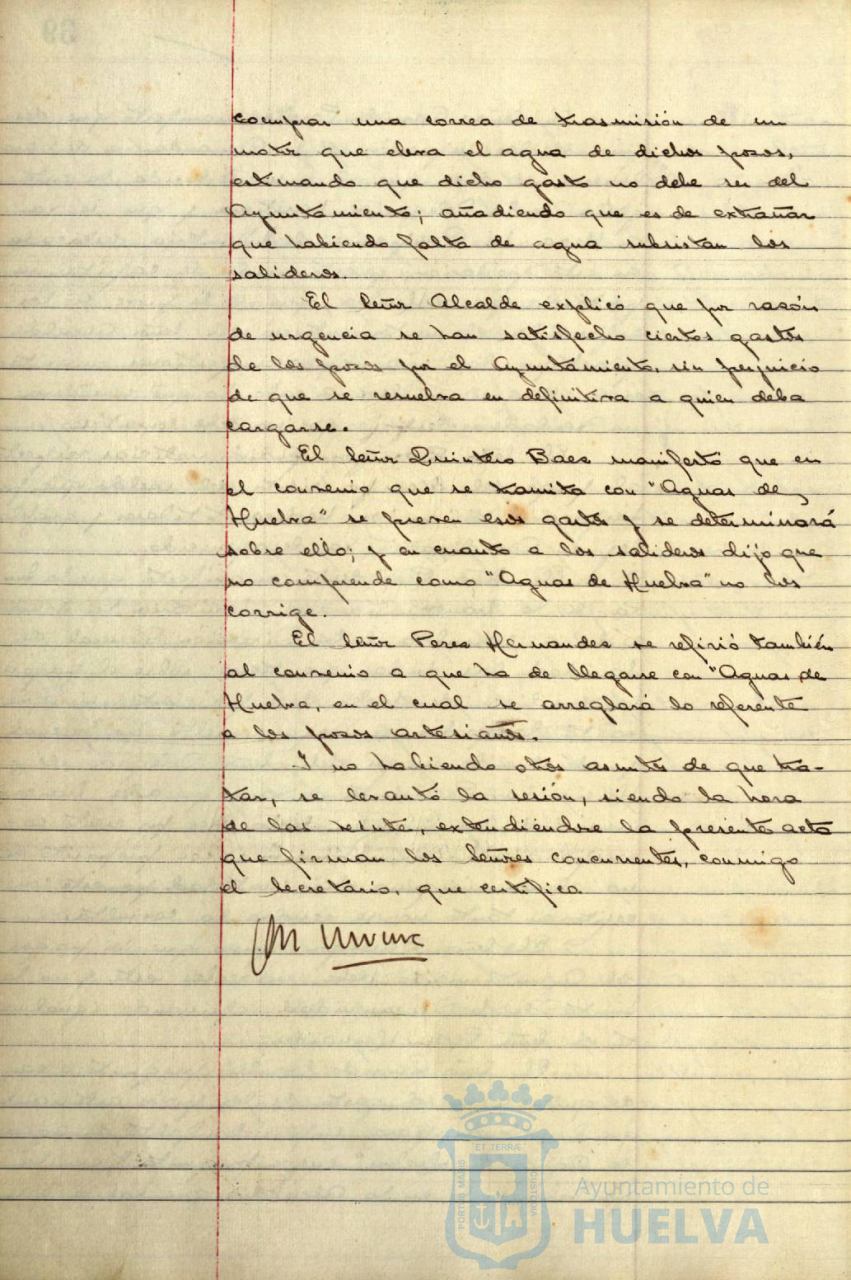 comprar una correa de trasmisión de un
motor que eleva el agua de dichos pozos,
estimando que dicho gasto no debe ser del
Ayuntamiento; añadiendo que es de extrañar
que habiendo falta de agua subsistan los
salideros.
El Señor Alcalde explicó que por razón
de urgencia se han satisfecho ciertos gastos
de los pozos por el Ayuntamiento, sin perjuicio
de que se resuelva en definitiva a quien deba
cargarse.
El Señor Quintero Baez manifestó que en
el convenio que se tramita con "Aguas de
Huelva" se preven esos gastos y se determinará
sobre ello; y en cuanto a los salideros dijo que
no comprende como "Aguas de Huelva" no los
corrige.
El Señor Perez Hernandez se refirió también
al convenio a que ha de llegarse con "Aguas de
Huelva, en el cual se arreglará lo referente
a los pozos artesianos.
Y no habiendo otros asuntos de que tra-
tar, se levantó la sesión, siendo la hora
de las veinte, extendiéndose la presente acta
que firman los Señores concurrentes, conmigo
el Secretario, que certifico.
39
PORTUS MARIS
ET TERRÆ
CUSTODIA
Ayuntamiento de
HUELVA